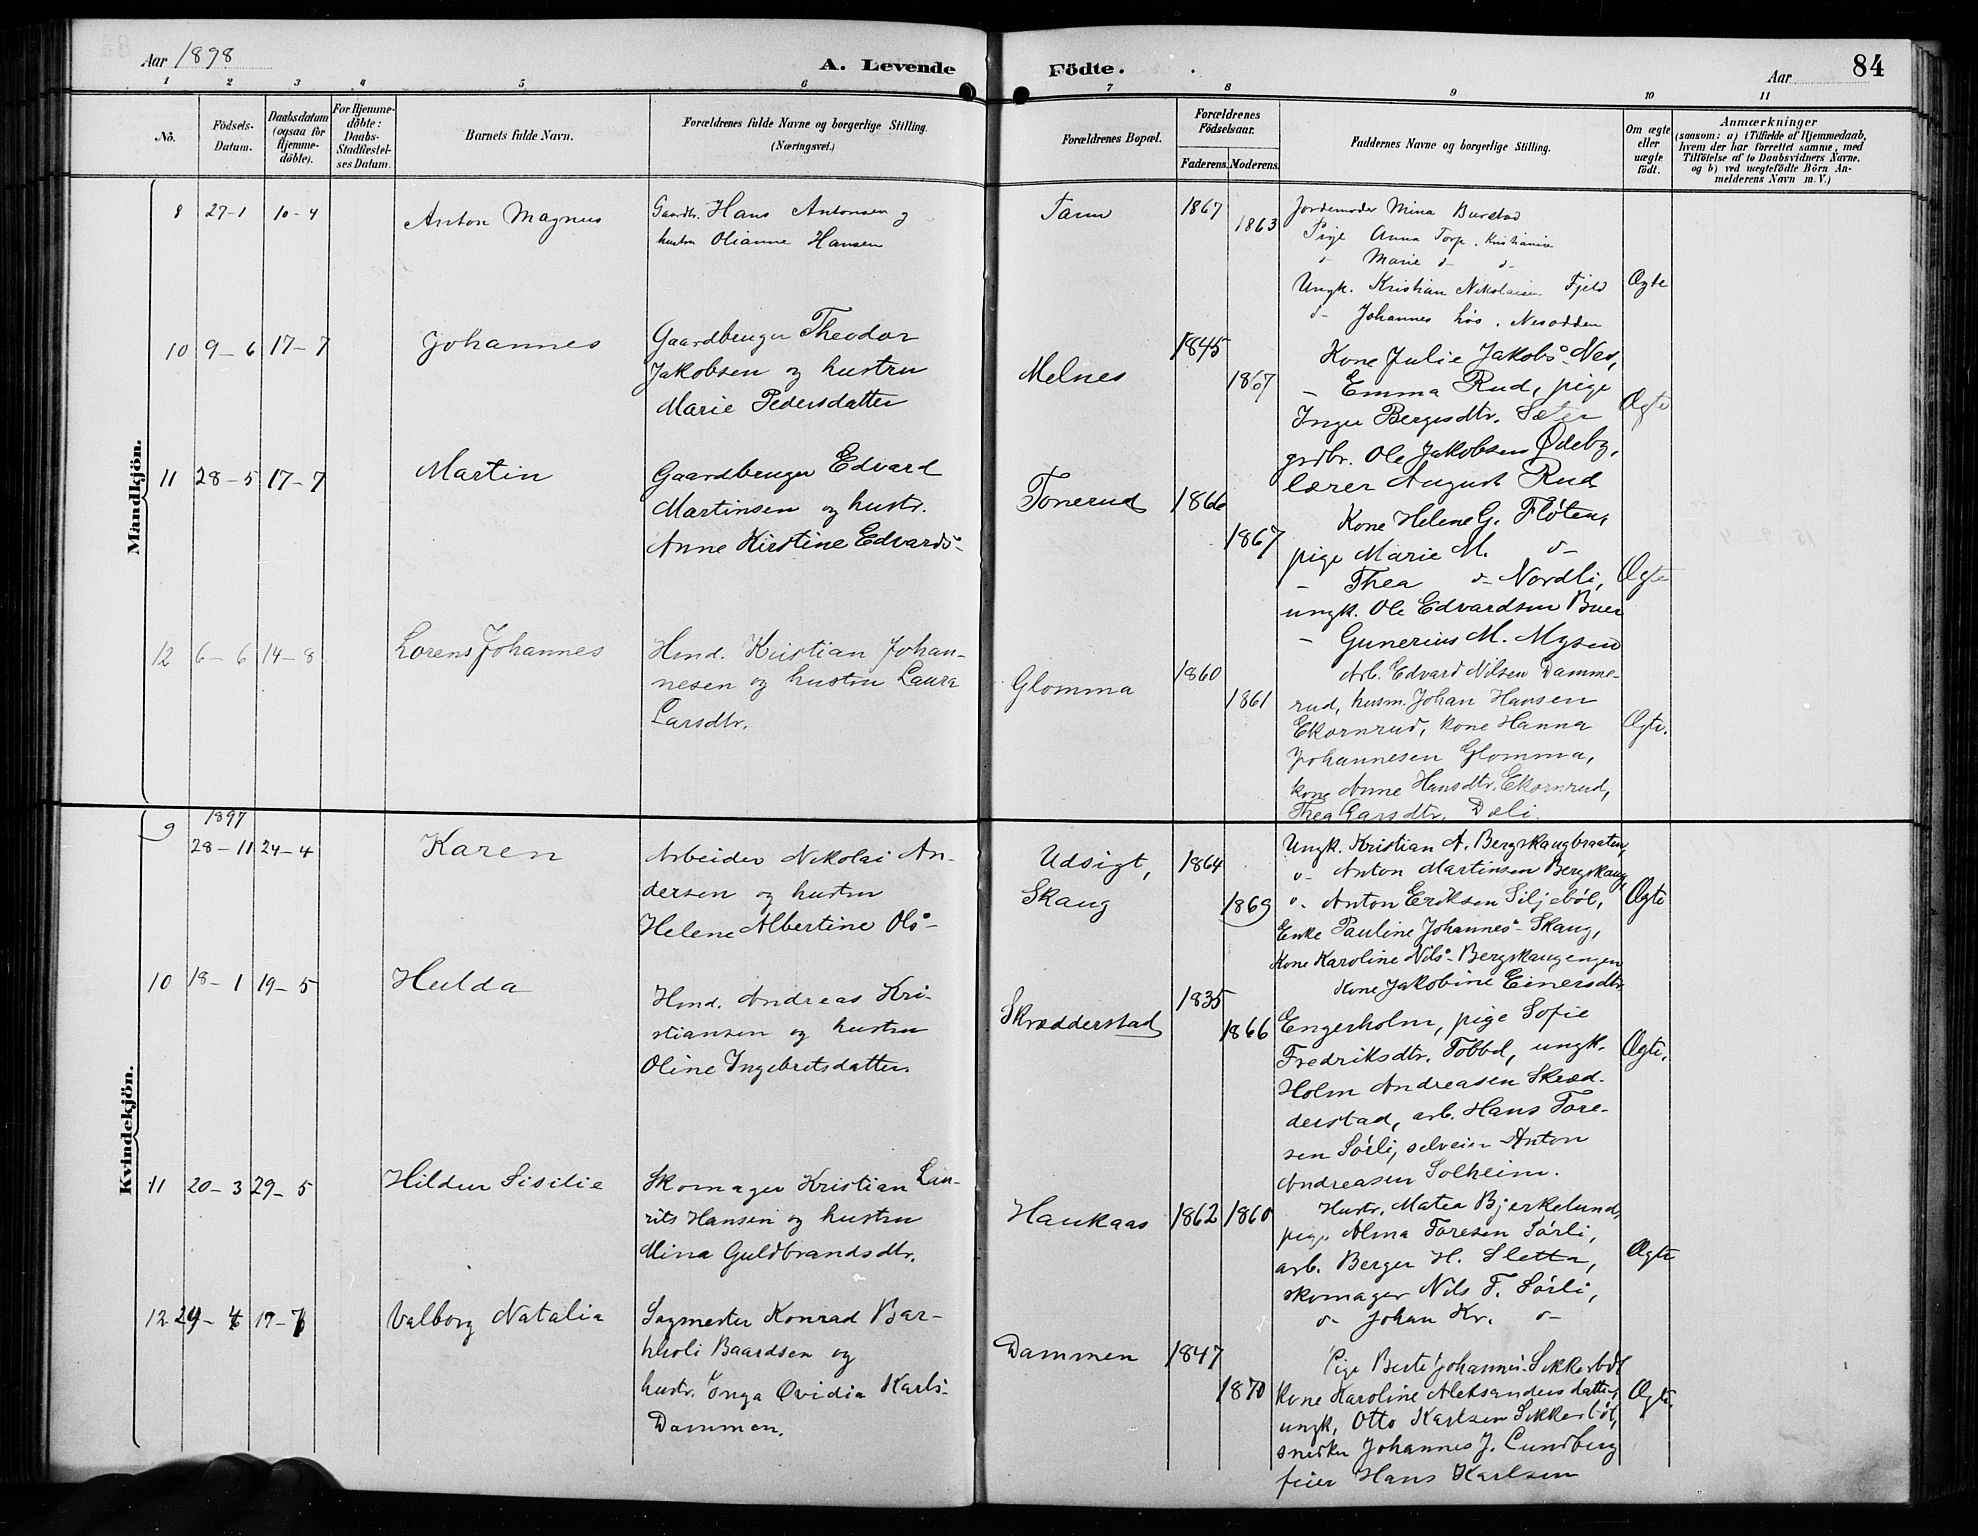 Aar 1898
A. Levende Födte.
Aar 84
1 2 3 4 5 6 7 8 9 10 11
No.
Födsels-Datum.
Daabsdatum (ogsaa for Hjemme-döbte).
For Hjemme-döbte: Daabs-Stadfæstel-ses Datum.
Barnets fulde Navn.
Forældrenes fulde Navne og borgerlige Stilling.
(Næringsvei.)
Forældrenes Bopæl.
Forældrenes Födselsaar.
Faderens. Moderens.
Faddernes Navne og borgerlige Stilling.
Om ægte eller uægte födt.
Anmærkninger
(saasom: a) i Tilfælde af Hjemmedaab,
hvem der har forrettet samme, med
Tilföielse af to Daabsvidners Navne.
og b) ved uægtefödte Börn An-
melderens Navn m. V.)
Mandkjön.
8 27-1 10-4 Anton Magnus
Gaardbr. Hans Antonsen og
hustru Olianne Hansen
1867
1863
Jordemoder Mina Burstad
Pige Anna Torp, Kristiania
d- Marie d- d-
Ungk. Kristian Nikolaisen Fjeld
d- Johannes Nesodden
Ægte
10 9-6 17-7 Johannes
Gaardbruger Theodor
Jakobsen og hustru
Marie Pedersdatter
Melnes
1845
1867
Kone Julie Jakobs- Nes,
- Emma Rud, pige
Inger Bergesdtr. Sæter
grdbr. Ole Jakobsen Ødeby,
lærer August Rud
Ægte
11 28-5 17-7 Martin
Gaardbruger Edvard
Martinsen og hustr.
Anne Kirstine Edvards-
Tonerud
1866
1867
Kone Helene G. Fløten,
pige Marie M. d-
- Thea d- Nordli,
ungk. Ole Edvardsen Buer
- Gunerius M. Mysen
Ægte
12 6-6 14-8 Lorens Johannes
Hmd. Kristian Johan-
nesen og hustru Laura
Larsdtr.
Glomma
1860
1861
Arb. Edvard Nilsen Damme-
rud, husm. Johan Hansen
Ekornrud, kone Hanna
Johannesen Glomma,
kone Anne Hansdtr. Ekornrud,
Thea Larsdtr. Dæli.
Ægte.
Kvindekjön.
9 1897
28-11 24-4 Karen
Arbeider Nikolai An-
dersen og hustru
Helene Albertine Ols-
Udsigt,
Skaug
1864
1869
Ungk. Kristian A. Bergskaugbraaten,
d- Anton Martinsen Bergskaug
d- Anton Eriksen Siljebøl,
Enke Pauline Johannes- Skaug,
Kone Karoline Nils- Bergskaugengen
Ægte
10 18-1 19-5 Hulda
Hmd. Andreas Kri-
stiansen og hustru
Oline Ingebretsdatter.
Skrædderstad
1835
1866
Kone Jakobine Einersdtr.
Engerholm, pige Sofie
Fredriksdtr. Tobbøl, ungk.
Holm Andreasen Skræd-
derstad, arb. Hans Tore-
sen Sørli, selveier Anton
Andreasen Solheim.
Ægte.
11 20-3 29-5 Hildur Sisilie
Skomager Kristian Lau-
rits Hansen og hustru
Mina Guldbrandsdtr.
Haukaas
1862 1860
Hustr. Matea Bjerkelund,
pige Alma Toresen Sørli,
arb. Berger H. Sletta,
skomager Nils T. Sørli,
d- Johan Kr. d-
Ægte
12 29-4 17-7 Valborg Natalia
Sagmester Konrad Bar-
tholi Baardsen og
hustr. Inga Ovidia Karls-
Dammen.
Dammen
1847
1870
Pige Berte Johannes- Sikkerbøl
Kone Karoline Aleksandersdatter,
ungk. Otto Karlsen Sikkerbøl,
snedker Johannes J. Lundberg
feier Hans Karlsen
Ægte